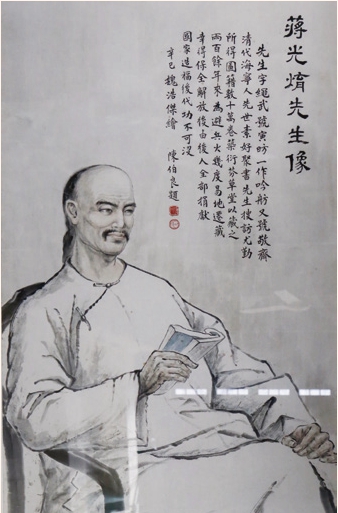 蔣光焴先生像
先生字繩武號寅昉一作吟舫又號敬齋
清代海寧人先世素好聚書先生搜訪尤勤
所得圖籍數十萬卷築衍芬草堂以藏之
兩百餘年來為避兵火幾度易地遷藏
幸得保全解放後由後人全部捐獻
國家造福後代功不可沒
辛巳魏浩傑繪 陳伯良題